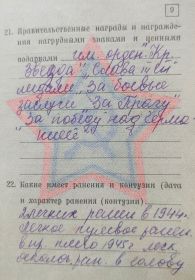 9
21. Правительственные награды и награжде-
ния нагрудными знаками и ценными
подарками орден "Кр.
Звезда", "Слава III"
медали "За боевые
заслуги" "За Прагу"
"За победу над Герма
нией"
22. Какие имеет ранения и контузии (дата
и характер ранения (контузии)
ранен в 1944г.
легкое пулевое ранен.
в пр. плечо 1945г. легк.
ран. в голову